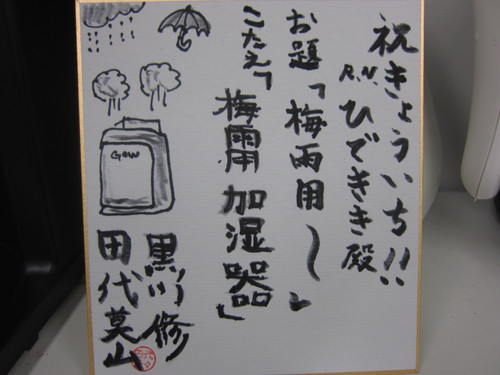 祝きょういち!!
R.N.ひできき殿
お題「梅雨用〜」
こたえ「
梅雨用加湿器」
Gew
黒川修
田代莫山